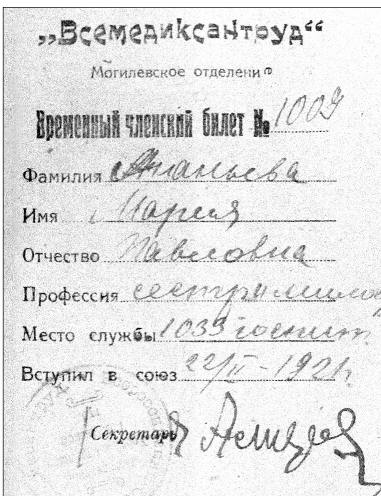 „Всемедиксантруд“
Могилевское отделение
Временный членский билет № 1009
Фамилия Ананьева
Имя Мария
Отчество Павловна
Профессия сестра милос
Место службы 1033 госпит.
Вступил в союз 22/II - 1921 г.
Секретарь